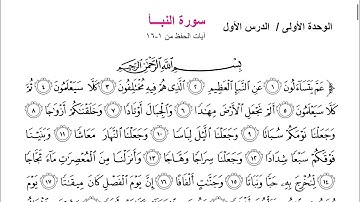 الوحدة الأولى / الدرس الأول
سورة النبأ
آيات الحفظ من ١-١٦
بِسْمِ اللَّهِ الرَّحْمَٰنِ الرَّحِيمِ
﴿ عَمَّ يَتَسَاءَلُونَ ١ عَنِ النَّبَإِ الْعَظِيمِ ٢ الَّذِي هُمْ فِيهِ مُخْتَلِفُونَ ٣ كَلَّا سَيَعْلَمُونَ ٤ ثُمَّ
كَلَّا سَيَعْلَمُونَ ٥ أَلَمْ نَجْعَلِ الْأَرْضَ مِهَادًا ٦ وَالْجِبَالَ أَوْتَادًا ٧ وَخَلَقْنَاكُمْ أَزْوَاجًا ٨
وَجَعَلْنَا نَوْمَكُمْ سُبَاتًا ٩ وَجَعَلْنَا اللَّيْلَ لِبَاسًا ١٠ وَجَعَلْنَا النَّهَارَ مَعَاشًا ١١ وَبَنَيْنَا
فَوْقَكُمْ سَبْعًا شِدَادًا ١٢ وَجَعَلْنَا سِرَاجًا وَهَّاجًا ١٣ وَأَنْزَلْنَا مِنَ الْمُعْصِرَاتِ مَاءً ثَجَّاجًا
١٤ لِنُخْرِجَ بِهِ حَبًّا وَنَبَاتًا ١٥ وَجَنَّاتٍ أَلْفَافًا ١٦ إِنَّ يَوْمَ الْفَصْلِ كَانَ مِيقَاتًا ١٧ يَوْمَ